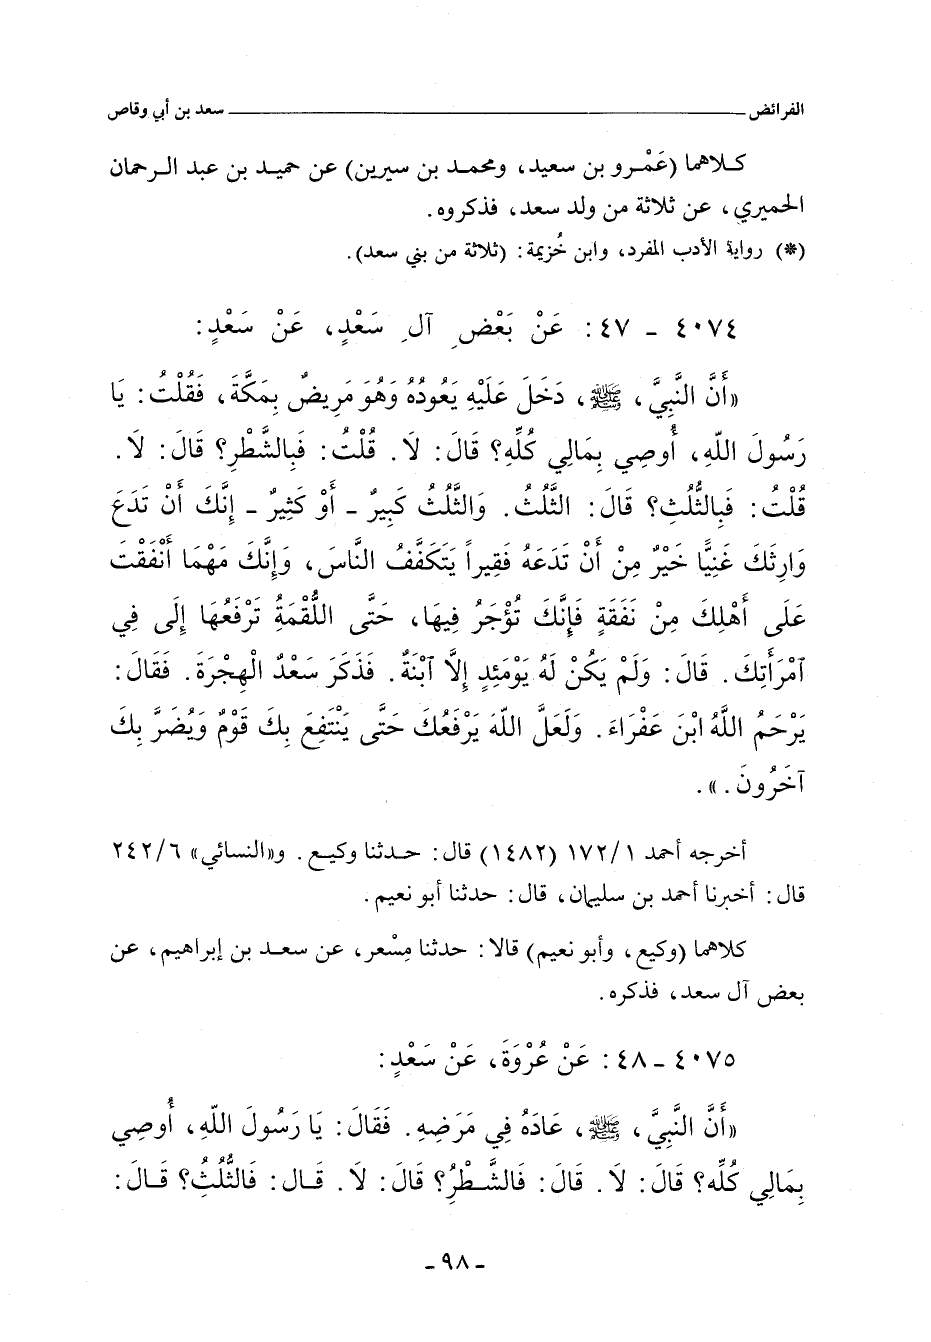 الفرائض ــــــــــــــــــــ سعد بن أبي وقاص
كلاهما (عَمْرو بن سعيد، ومحمد بن سيرين) عن حميد بن عبد الرحمان
الحميري، عن ثلاثة من ولد سعد، فذكروه.
(*) رواية الأدب المفرد، وابن خُزيمة: (ثلاثة من بني سعد).
٤٠٧٤ - ٤٧: عَنْ بَعْضِ آلِ سَعْدٍ، عَنْ سَعْدٍ:
«أَنَّ النَّبِيَّ، ﷺ، دَخَلَ عَلَيْهِ يَعُودُهُ وَهُوَ مَرِيضٌ بِمَكَّةَ، فَقُلْتُ: يَا
رَسُولَ اللّهِ، أُوصِي بِمَالِي كُلِّهِ؟ قَالَ: لَا. قُلْتُ: فَبِالشَّطْرِ؟ قَالَ: لَا.
قُلْتُ: فَبِالثُّلُثِ؟ قَالَ: الثُّلُثُ. وَالثُّلُثُ كَبِيرٌ - أَوْ كَثِيرٌ - إِنَّكَ أَنْ تَدَعَ
وَارِثَكَ غَنِيًّا خَيْرٌ مِنْ أَنْ تَدَعَهُ فَقِيراً يَتَكَفَّفُ النَّاسَ، وَإِنَّكَ مَهْمَا أَنْفَقْتَ
عَلَى أَهْلِكَ مِنْ نَفَقَةٍ فَإِنَّكَ تُؤْجَرُ فِيهَا، حَتَّى اللُّقْمَةُ تَرْفَعُهَا إِلَى فِي
ٱمْرَأَتِكَ. قَالَ: وَلَمْ يَكُنْ لَهُ يَوْمَئِدٍ إِلَّا ٱبْنَةٌ. فَذَكَرَ سَعْدٌ الْهِجْرَةَ. فَقَالَ:
يَرْحَمُ اللَّهُ ابْنَ عَفْرَاءَ. وَلَعَلَّ اللّهَ يَرْفَعُكَ حَتَّى يَنْتَفِعَ بِكَ قَوْمٌ وَيُضَرَّ بِكَ
آخَرُونَ.».
أخرجه أحمد ١/١٧٢ (١٤٨٢) قال: حدثنا وكيع. و«النسائي» ٦/٢٤٢
قال: أخبرنا أحمد بن سليمان، قال: حدثنا أبو نعيم.
كلاهما (وكيع، وأبو نعيم) قالا: حدثنا مِسْعر، عن سعد بن إبراهيم، عن
بعض آل سعد، فذكره.
٤٠٧٥ - ٤٨: عَنْ عُرْوَةَ، عَنْ سَعْدٍ:
«أَنَّ النَّبِيَّ، ﷺ، عَادَهُ فِي مَرَضِهِ. فَقَالَ: يَا رَسُولَ اللّهِ، أُوصِي
بِمَالِي كُلِّه؟ قَالَ: لَا. قَالَ: فَالشَّطْرُ؟ قَالَ: لَا. قَال: فَالثُّلُثُ؟ قَالَ:
- ٩٨ -